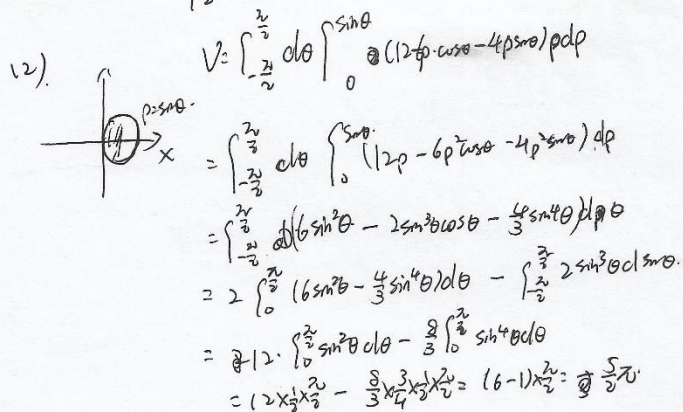 (2).
V = \int_{-\frac{\pi}{2}}^{\frac{\pi}{2}} dθ \int_{0}^{sinθ} (12-6ρ·cosθ-4ρsinθ)ρdρ
ρ=sinθ.
x
= \int_{-\frac{\pi}{2}}^{\frac{\pi}{2}} dθ \int_{0}^{sinθ} (12ρ - 6ρ²cosθ - 4ρ²sinθ).dρ
= \int_{-\frac{\pi}{2}}^{\frac{\pi}{2}} (6sin²θ - 2sin³θcosθ - \frac{4}{3}sin⁴θ)dθ
= 2 \int_{0}^{\frac{\pi}{2}} (6sin²θ - \frac{4}{3}sin⁴θ)dθ - \int_{-\frac{\pi}{2}}^{\frac{\pi}{2}} 2sin³θdsinθ.
= 12· \int_{0}^{\frac{\pi}{2}} sin²θdθ - \frac{8}{3} \int_{0}^{\frac{\pi}{2}} sin⁴θdθ
= 12×\frac{1}{2}×\frac{\pi}{2} - \frac{8}{3}×\frac{3}{4}×\frac{1}{2}×\frac{\pi}{2} = (6-1)×\frac{\pi}{2} = \frac{5}{2}π.